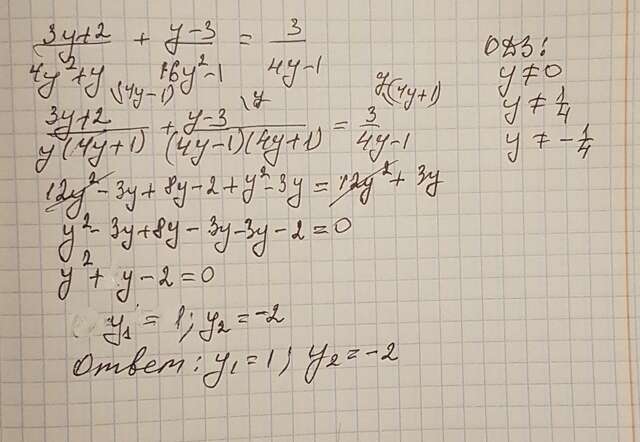 (3y+2)/(4y²+y) + (y-3)/(16y²-1) = 3/(4y-1)
ОДЗ:
y≠0
y≠1/4
y≠-1/4
(3y+2)/(y(4y+1)) \(4y-1) + (y-3)/((4y-1)(4y+1)) \y = 3/(4y-1) y(4y+1)
12y²-3y+8y-2+y²-3y=12y²+3y
y²-3y+8y-3y-3y-2=0
y²+y-2=0
y₁=1; y₂=-2
Ответ: y₁=1; y₂=-2